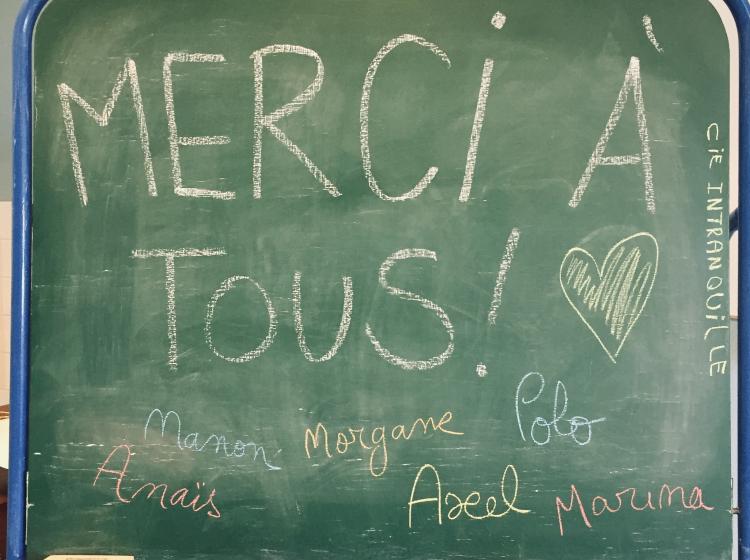 MERCI À
TOUS!
CIE INTRANQUILLE
Manon Morgane Polo
Anaïs Axel Marina